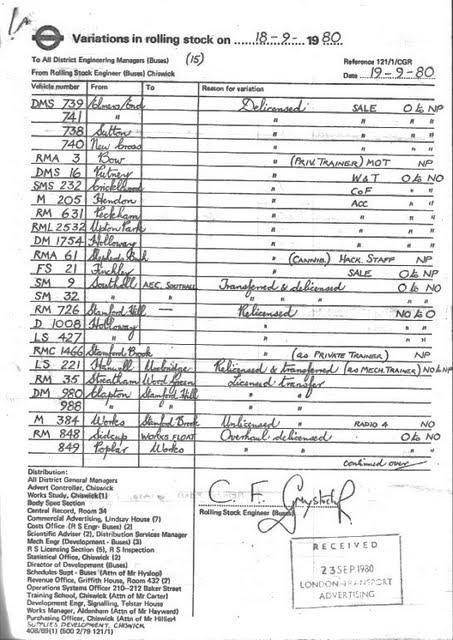 1A
Variations in rolling stock on 18-9-1980
To All District Engineering Managers (Buses) (15) Reference 121/1/CGR
From Rolling Stock Engineer (Buses) Chiswick Date 19-9-80
Vehicle number From To Reason for variation
DMS 739 Elmers/End Delicensed SALE O to NP
741 " " " "
738 Sutton " " "
740 New Cross " " "
RMA 3 Bow " (PRIV. TRAINER) MOT NP
DMS 16 Putney " W&T O to NO
SMS 232 Cricklewood " CoF " "
M 205 Hendon " ACC " "
RM 631 Peckham " " " "
RML 2532 Upton Park " " " "
DM 1754 Holloway " " " "
RMA 61 Stamford Brook " (CANNIB.) MACK. STAFF NP
FS 21 Finchley " SALE O to NP
SM 9 Southall AEC. SOUTHALL Transferred & delicensed O to NO
SM 32 " " " " "
RM 726 Stamford Hill — Relicensed NO to O
D 1008 Holloway " "
LS 427 " " "
RMC 1466 Stamford Brook " (as PRIVATE TRAINER) NP
LS 221 Hanwell Uxbridge Relicensed & transferred (as MECH. TRAINER) NO to NP
RM 35 Streatham Wood Green Licensed transfer
DM 980 Clapton Stamford Hill " "
988 " " " "
M 384 Works Stamford Brook Unlicensed RADIO 4 NO
RM 848 Sidcup WORKS FLOAT Overhaul delicensed O to NO
849 Poplar Works " " "
continued over
Distribution:
All District General Managers
Advert Controller, Chiswick
Works Study, Chiswick(1)
Body Spec Section
Central Record, Room 34
Commercial Advertising, Lindsay House (7)
Costs Office (R S Engr- Buses) (2)
Scientific Adviser (2), Distribution Services Manager
Mech Engr (Development - Buses) (3)
R S Licensing Section (5), R S Inspection
Statistical Office, Chiswick (2)
Director of Development (Buses)
Schedules Supt - Buses (Attn of Mr Hyslop)
Revenue Office, Griffith House, Room 432 (2)
Operations Systems Officer 210-212 Baker Street
Training School, Chiswick (Attn of Mr Carter)
Development Engr, Signalling, Telstar House
Works Manager, Aldenham (Attn of Mr Hayward)
Purchasing Officer, Chiswick (Attn of Mr Hillier)
SUPPLIES DEVELOPMENT, CHISWICK
408/69(1) (500 2/79 121/1)
Rolling Stock Engineer (Buses)
RECEIVED
23 SEP 1980
LONDON TRANSPORT
ADVERTISING